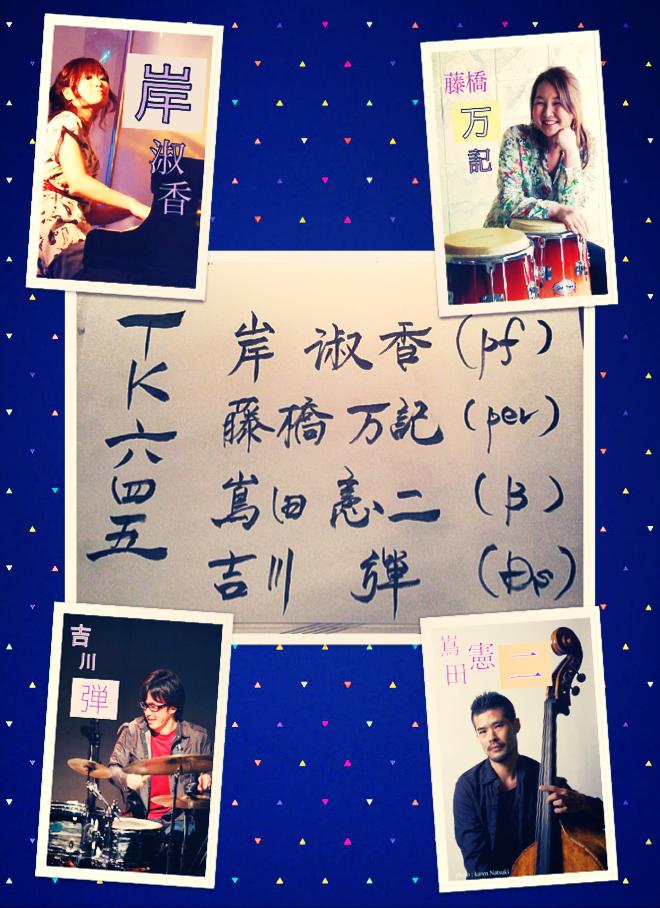 岸
淑香
藤橋
万
記
TK六四五
岸 淑香 (pf)
藤橋 万記 (per)
嶌田 憲二 (B)
吉川 彈 (Ds)
吉川
弾
嶌田
憲
二
photo : karen Natsuki